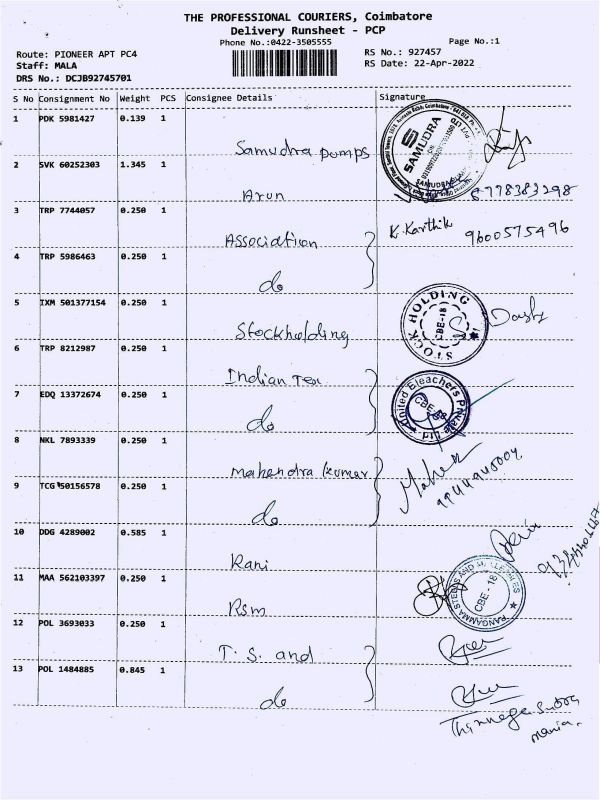 THE PROFESSIONAL COURIERS, Coimbatore
Delivery Runsheet - PCP
Phone No.:0422-3505555
Page No.:1
Route: PIONEER APT PC4
RS No.: 927457
Staff: MALA
RS Date: 22-Apr-2022
DRS No.: DCJB92745701
S No Consignment No Weight PCS Consignee Details Signature
1 PDK 5981427 0.139 1
Samudra pumps
SAMUDRA
2 SVK 60252303 1.345 1
Arun
8778383298
3 TRP 7744057 0.250 1
Association
K. Karthik
9600575496
4 TRP 5986463 0.250 1
do
5 IXM 501377154 0.250 1
Stockholding
STOCK HOLDING
CBE-18
6 TRP 8212987 0.250 1
Indian Tex
7 EDQ 13372674 0.250 1
do
United Bleachers Private Ltd
CBE
8 NKL 7893339 0.250 1
Mahendra kumar
9 TCG 50156578 0.250 1
do
Mahe
10 DDG 4289002 0.585 1
Rani
11 MAA 562103397 0.250 1
Rsm
RANGAMMA STEELS AND MALLEABLES
CBE-18
12 POL 3693033 0.250 1
T. S. and
13 POL 1484885 0.845 1
do